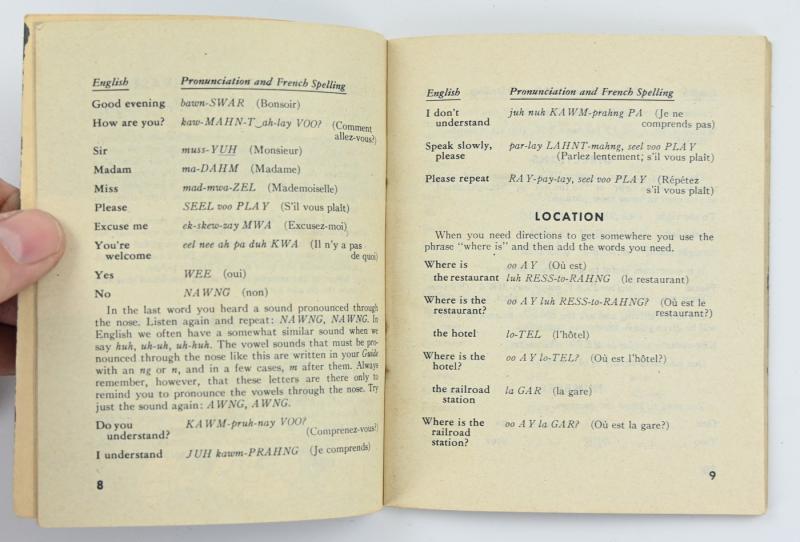 English Pronunciation and French Spelling
Good evening bawn-SWAR (Bonsoir)
How are you? kaw-MAHN-T‿ah-lay VOO? (Comment
allez-vous?)
Sir muss-YUH (Monsieur)
Madam ma-DAHM (Madame)
Miss mad-mwa-ZEL (Mademoiselle)
Please SEEL voo PLAY (S'il vous plaît)
Excuse me ek-skew-zay MWA (Excusez-moi)
You're eel nee ah pa duh KWA (Il n'y a pas
welcome de quoi)
Yes WEE (oui)
No NAWNG (non)
In the last word you heard a sound pronounced through
the nose. Listen again and repeat: NAWNG, NAWNG. In
English we often have a somewhat similar sound when we
say huh, uh-uh, uh-huh. The vowel sounds that must be pro-
nounced through the nose like this are written in your Guide
with an ng or n, and in a few cases, m after them. Always
remember, however, that these letters are there only to
remind you to pronounce the vowels through the nose. Try
just the sound again: AWNG, AWNG.
Do you KAWM-pruh-nay VOO?
understand? (Comprenez-vous?)
I understand JUH kawm-PRAHNG (Je comprends)
8
English Pronunciation and French Spelling
I don't juh nuh KAWM-prahng PA (Je ne
understand comprends pas)
Speak slowly, par-lay LAHNT-mahng, seel voo PLAY
please (Parlez lentement; s'il vous plaît)
Please repeat RAY-pay-tay, seel voo PLAY (Répétez
s'il vous plaît)
LOCATION
When you need directions to get somewhere you use the
phrase "where is" and then add the words you need.
Where is oo AY (Où est)
the restaurant luh RESS-to-RAHNG (le restaurant)
Where is the oo AY luh RESS-to-RAHNG? (Où est le
restaurant? restaurant?)
the hotel lo-TEL (l'hôtel)
Where is the oo AY lo-TEL? (Où est l'hôtel?)
hotel?
the railroad la GAR (la gare)
station
Where is the oo AY la GAR? (Où est la gare?)
railroad
station?
9